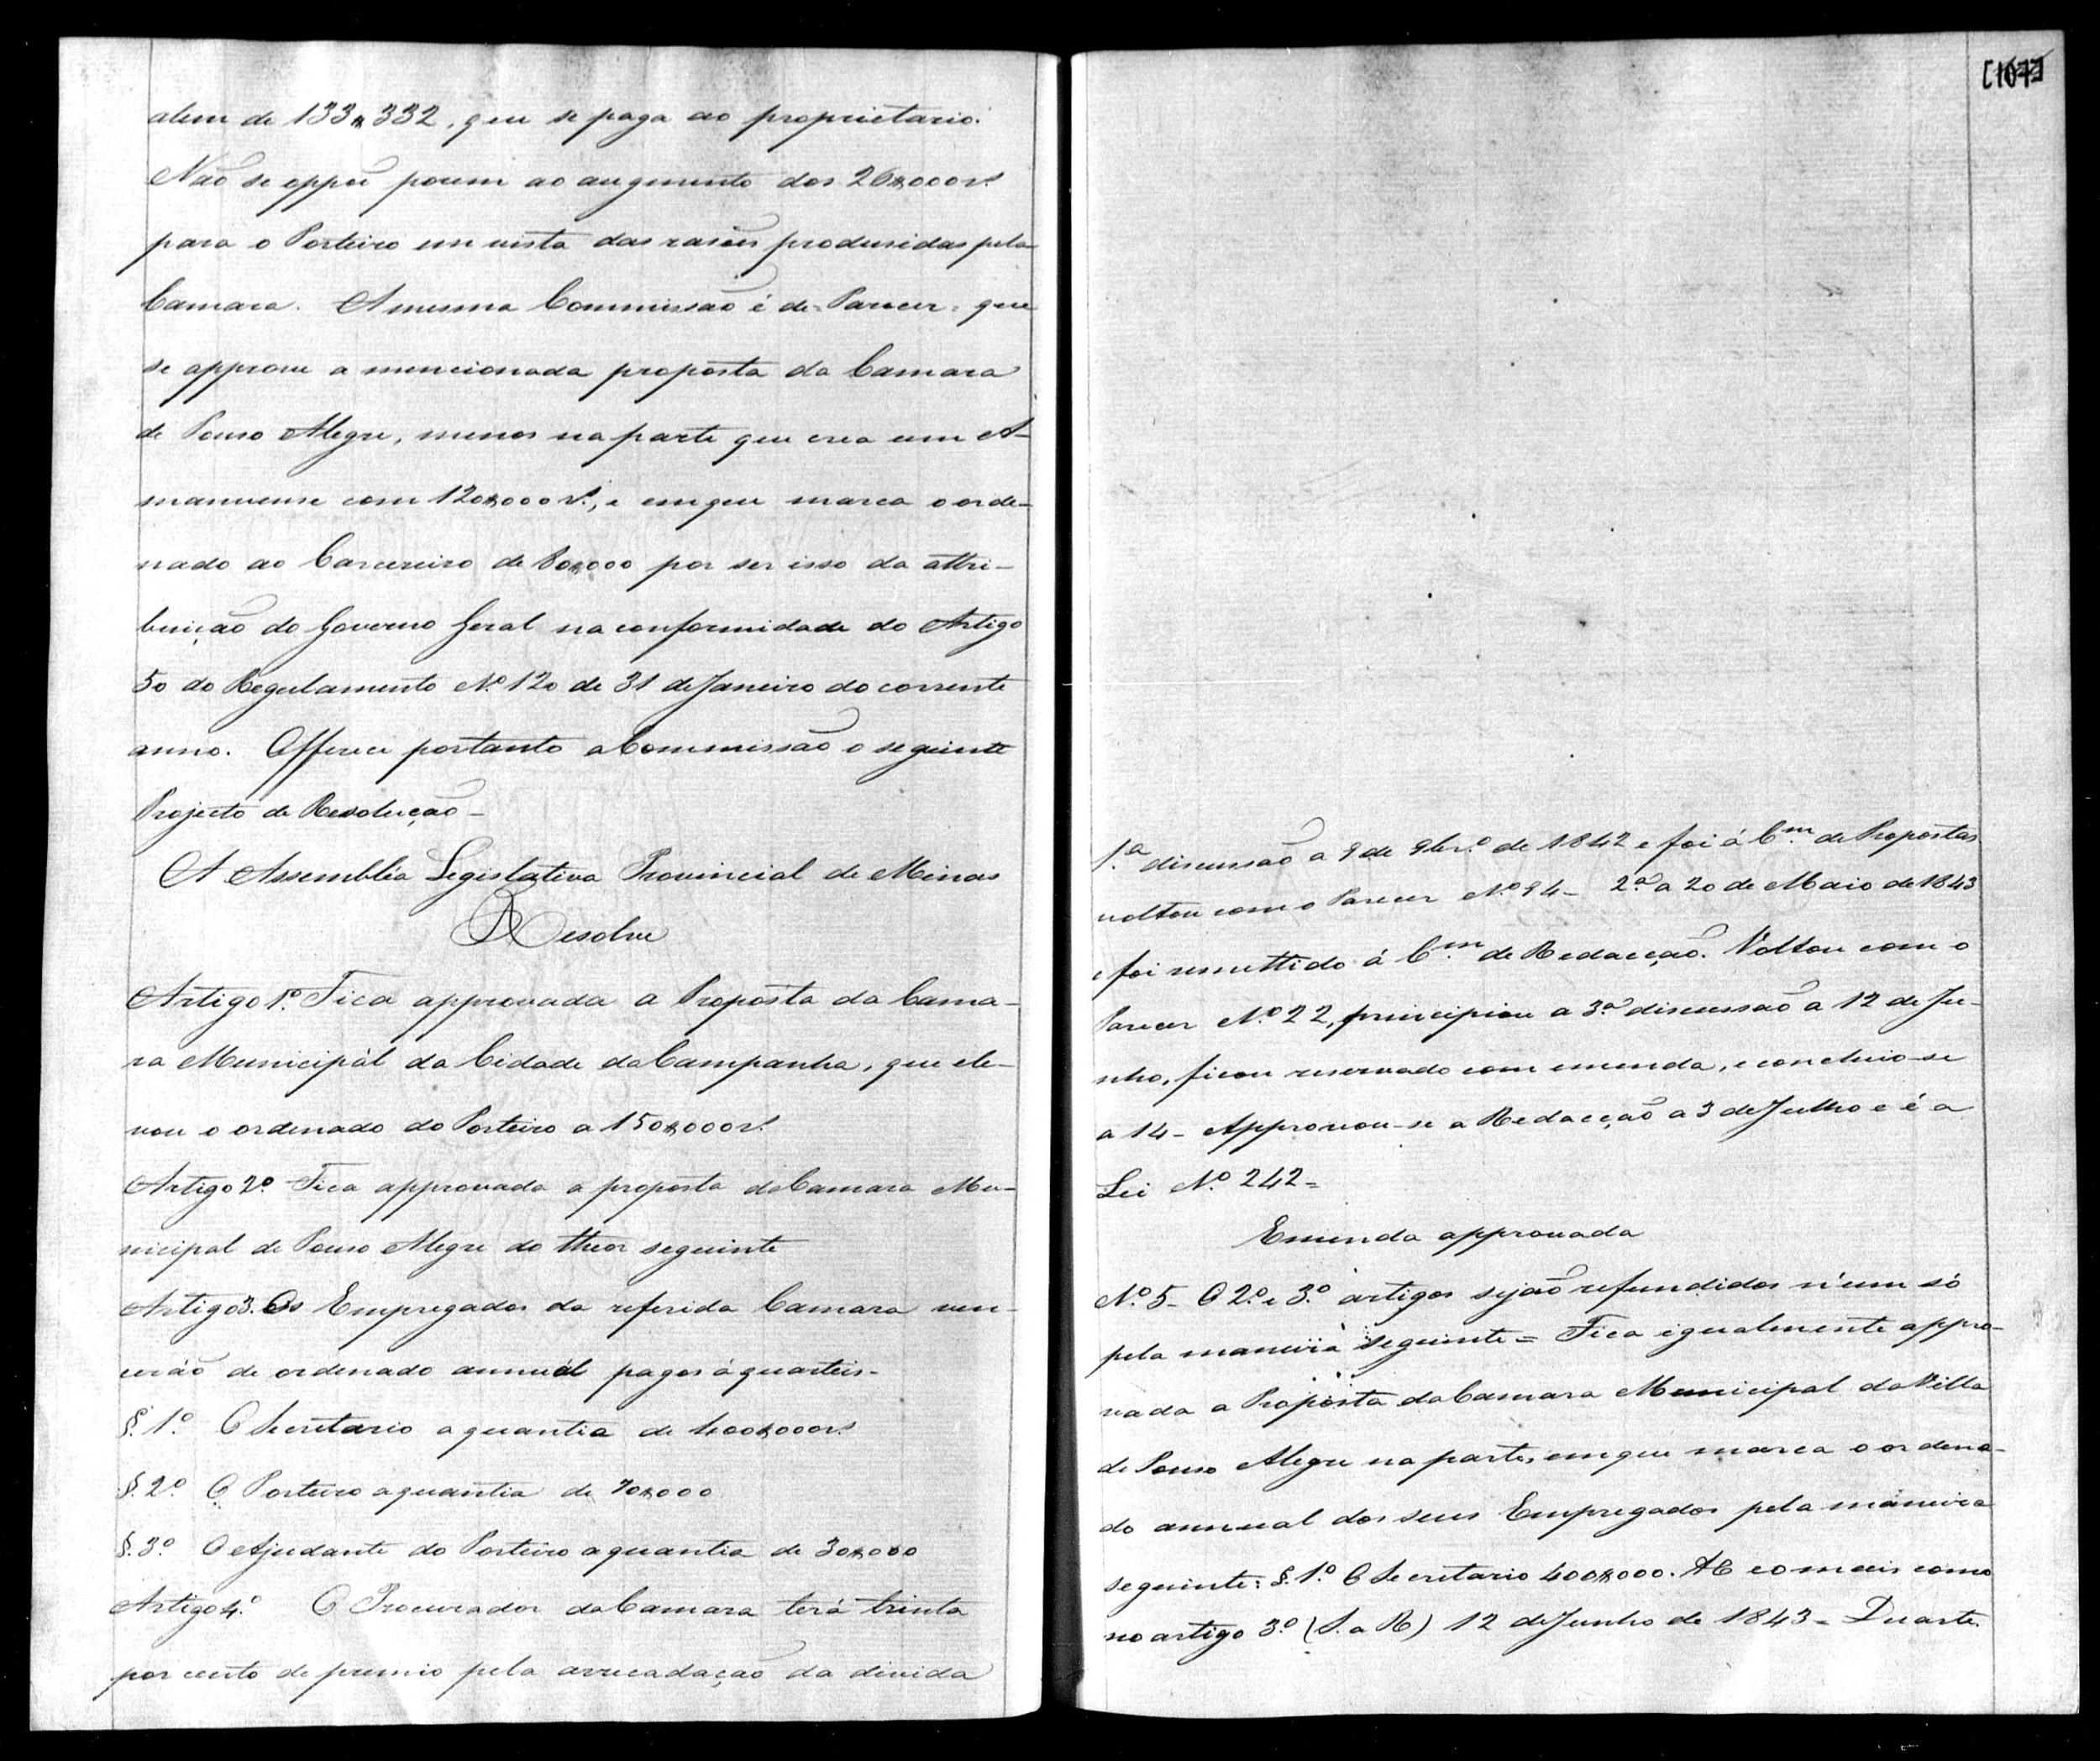 alem de 133$332, que se paga ao proprietario.
Não se oppõe porem ao augmento dos 26$000 rs.
para o Porteiro em vista das rasões produsidas pela
Camara. A mesma Commissão é de = Parecer = que
se approve a mencionada proposta da Camara
de Pouso Alegre, menos na parte que crea um A-
manuense com 120$000 rs., e em que marca o orde-
nado ao Carcereiro de 80$000 por ser isso da attri-
buição do Governo Geral na conformidade do Artigo
50 do Regulamento Nº 120 de 31 de Janeiro do corrente
anno. Offerece portanto a Commissão o seguinte
Projecto de Resolução -
A Assemblea Legislativa Provincial de Minas
Resolve
Artigo 1º. Fica approvada a Proposta da Cama-
ra Municipál da Cidade da Campanha, que ele-
vou o ordenado do Porteiro a 150$000 rs.
Artigo 2º. Fica approvada a proposta da Camara Mu-
nicipal de Pouso Alegre do theor seguinte
Artigo 3. Os Empregados da referida Camara ven-
cerão de ordenado annuál pagos á quarteis -
§. 1º. O Secretario a quantia de 400$000 rs.
§. 2º. O Porteiro a quantia de 70$000
§. 3º. O Ajudante do Porteiro a quantia de 30$000
Artigo 4.º O Procurador da Camara terá trinta
por cento de premio pela arrecadação da divida
[107]
1.ª discussão a 9 de 9br.º de 1842 e foi á C.m de Propostas
voltou com o Parecer Nº 94 - 2.ª a 20 de Maio de 1843
e foi remettido á C.m de Redacção. Voltou com o
Parecer Nº 22, principiou a 3ª discussão a 12 de Ju-
nho, ficou reservado com emenda, e concluio-se
a 14 - Approvou-se a Redacção a 3 de Julho e é a
Lei Nº 242 =
Emenda approvada
Nº 5 - O 2º e 3.º artigos sejão refundidos n'um só
pela maneira seguinte = Fica igualmente appro-
vada a Proposta da Camara Municipal da Villa
de Pouso Alegre na parte, em que marca o ordena-
do annual dos seus Empregados pela maneira
seguinte: §. 1º. O Secretario 400$000. E o mais como
no artigo 3.º (S. a R) 12 de Junho de 1843 - Duarte.